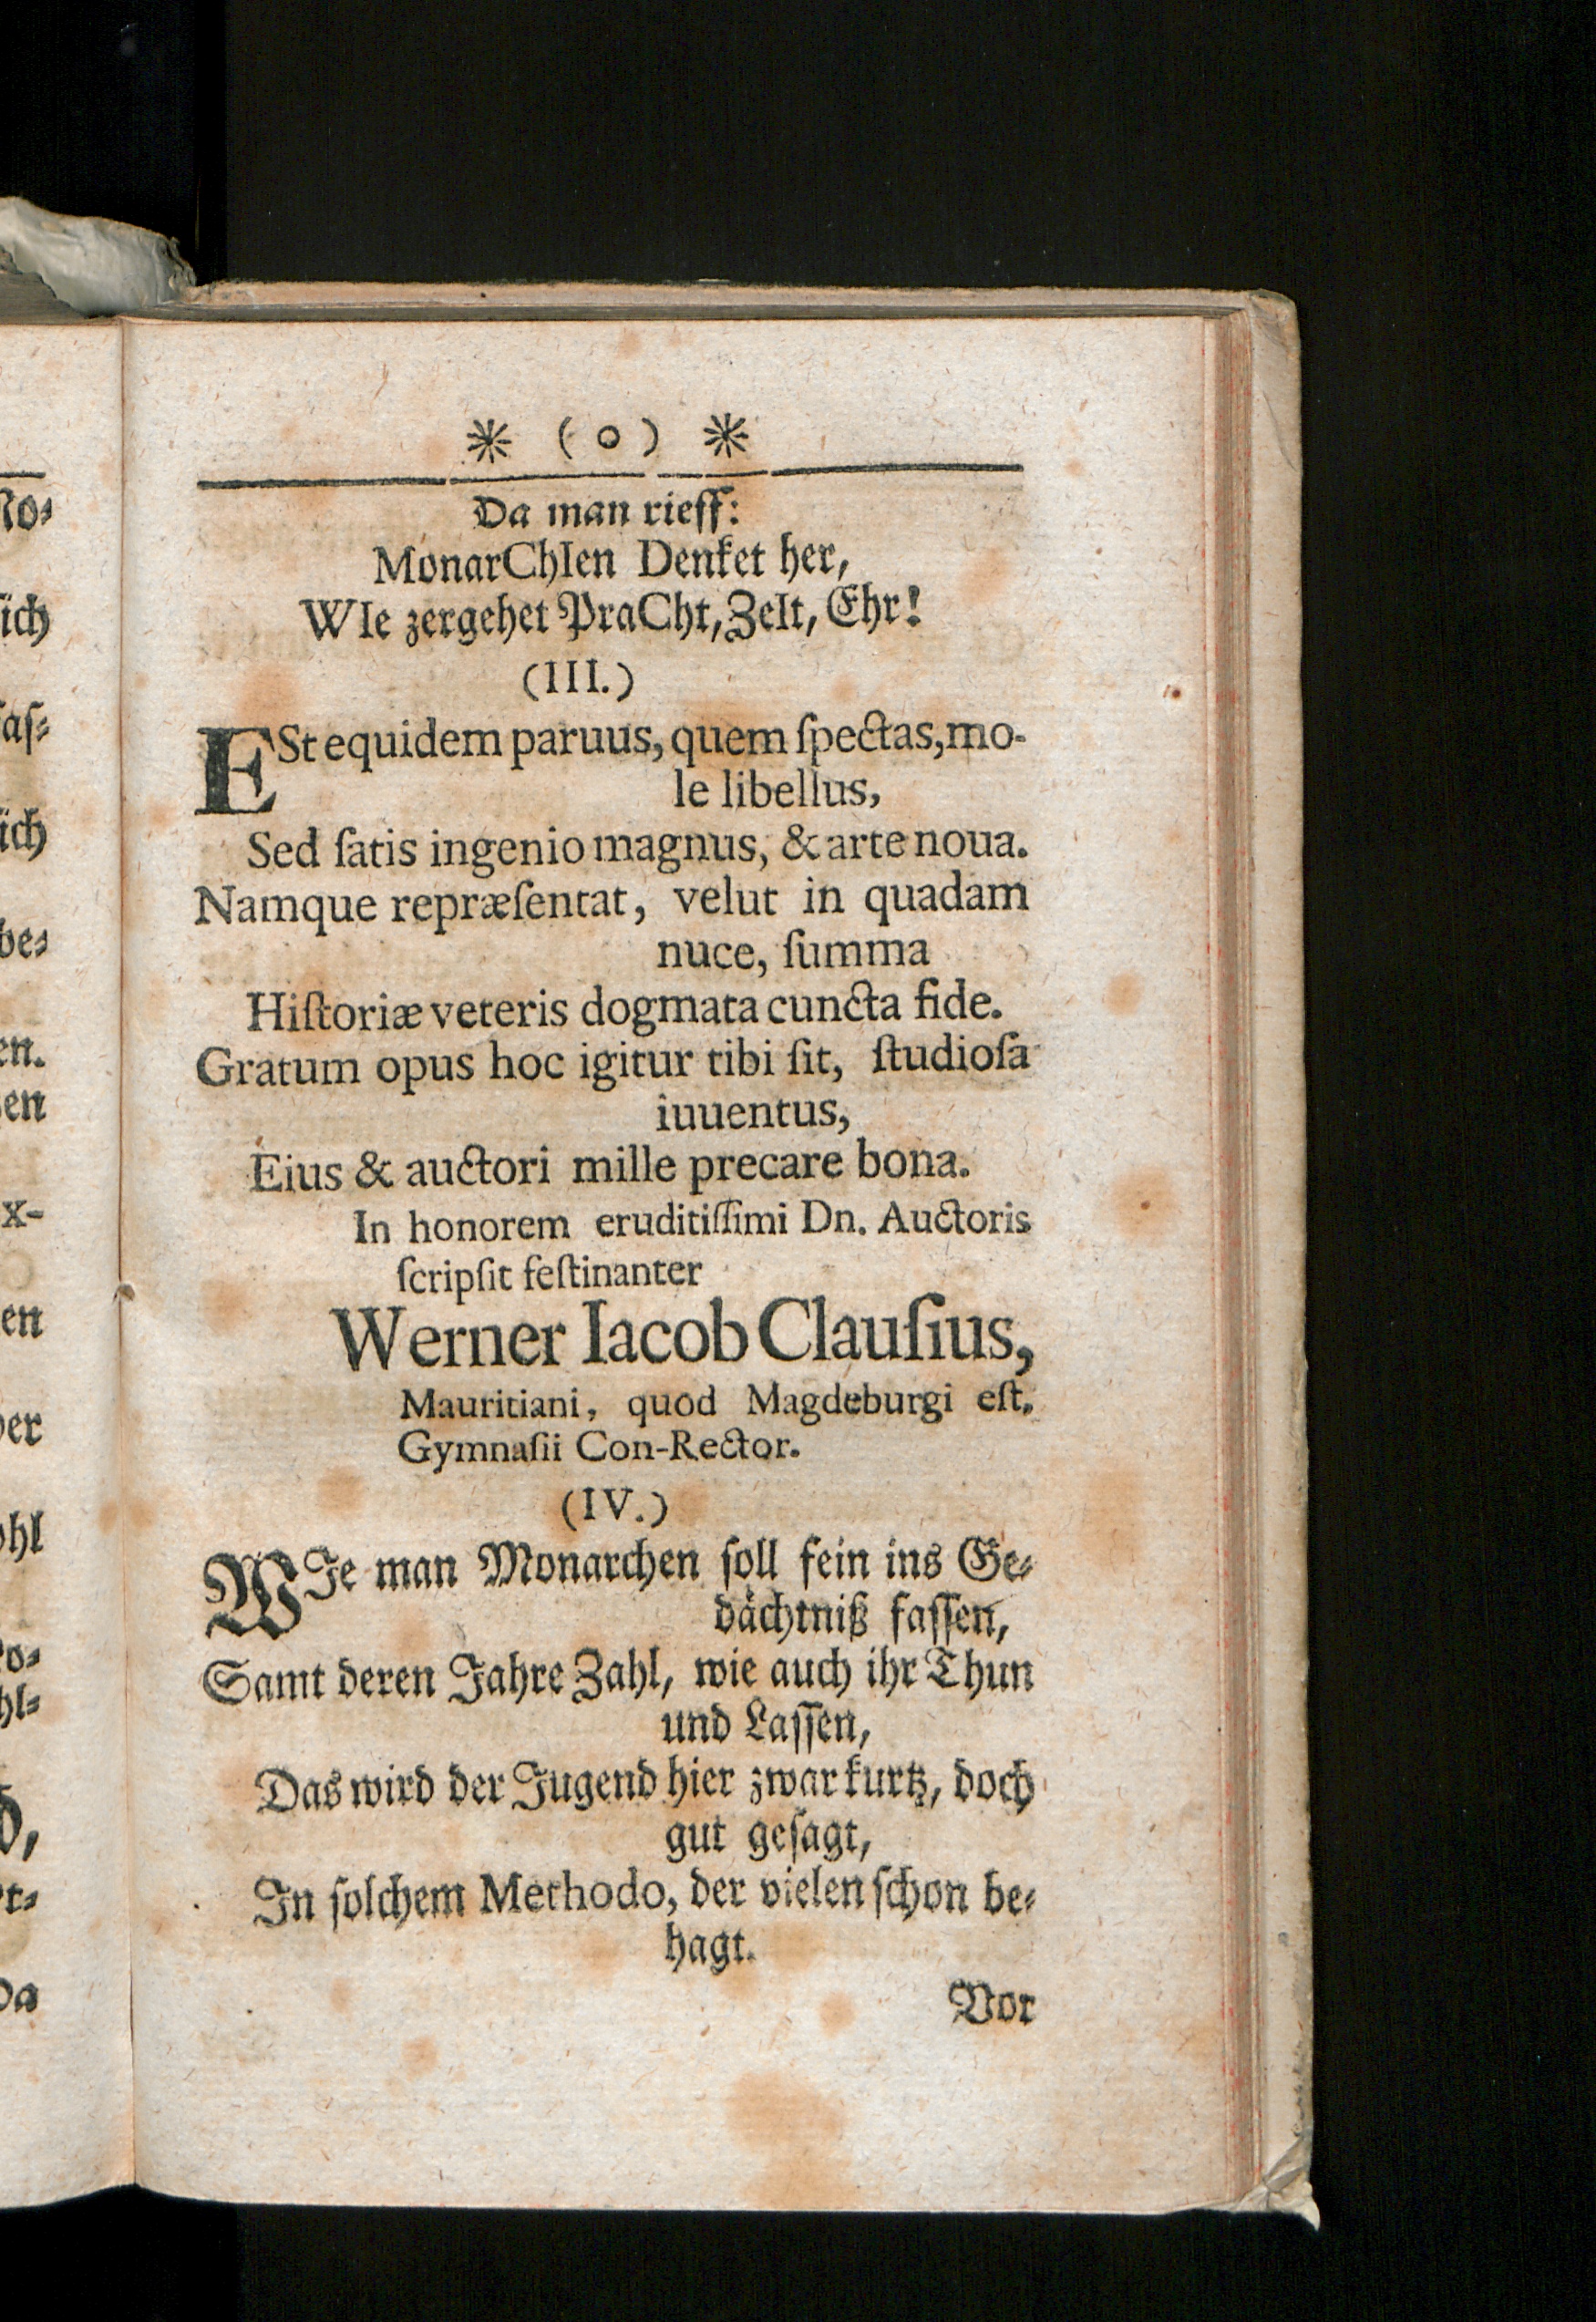 * (o) *
Da man rieff:
MonarChIen Denket her,
WIe zergehet PraCht, ZeIt, Ehr!
(III.)
ESt equidem paruus, quem ſpectas, mo-
le libellus,
Sed ſatis ingenio magnus, & arte noua.
Namque repræſentat, velut in quadam
nuce, ſumma
Hiſtoriæ veteris dogmata cuncta fide.
Gratum opus hoc igitur tibi ſit, ſtudioſa
iuuentus,
Eius & auctori mille precare bona.
In honorem eruditiſſimi Dn. Auctoris
ſcripſit feſtinanter
Werner Iacob Clauſius,
Mauritiani, quod Magdeburgi eſt,
Gymnaſii Con-Rector.
(IV.)
WIe man Monarchen ſoll fein ins Ge-
dächtniß faſſen,
Samt deren Jahre Zahl, wie auch ihr Thun
und Laſſen,
Das wird der Jugend hier zwar kurtz, doch
gut geſagt,
In ſolchem Methodo, der vielen ſchon be-
hagt.
Vor